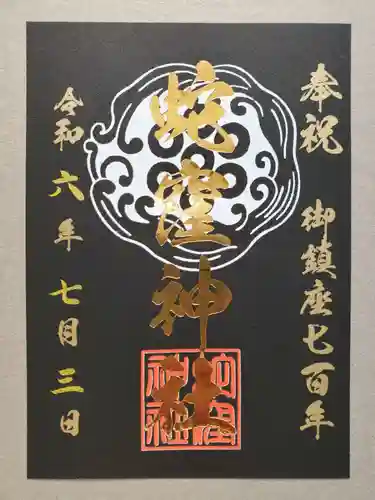 奉祝
御鎮座七百年
蛇窪神社
令和六年七月三日
蛇窪神社